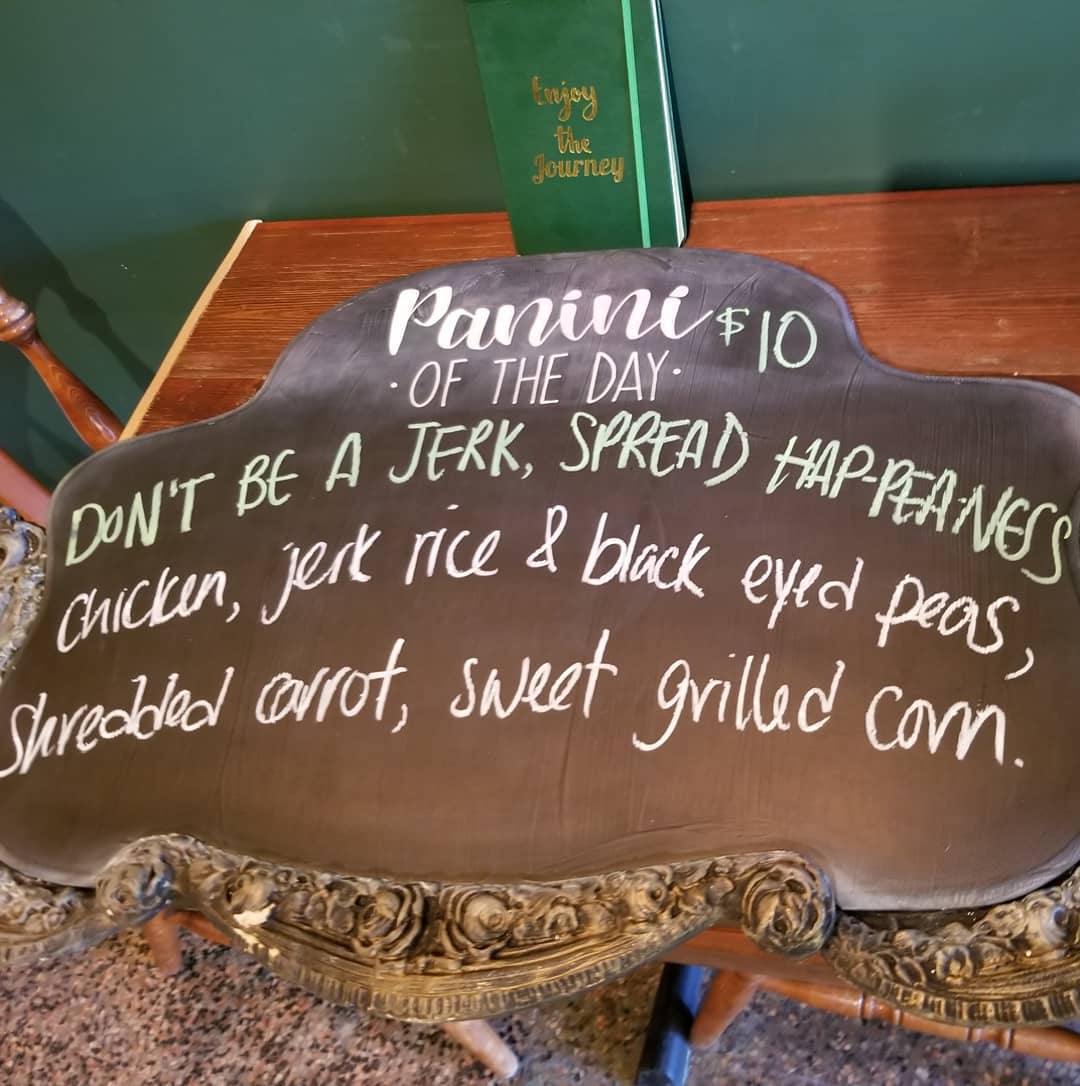 Enjoy
the
Journey
Panini $10
·OF THE DAY·
DON'T BE A JERK, SPREAD HAP-PEA-NESS
Chicken, jerk rice & black eyed peas,
Shredded carrot, sweet grilled corn.